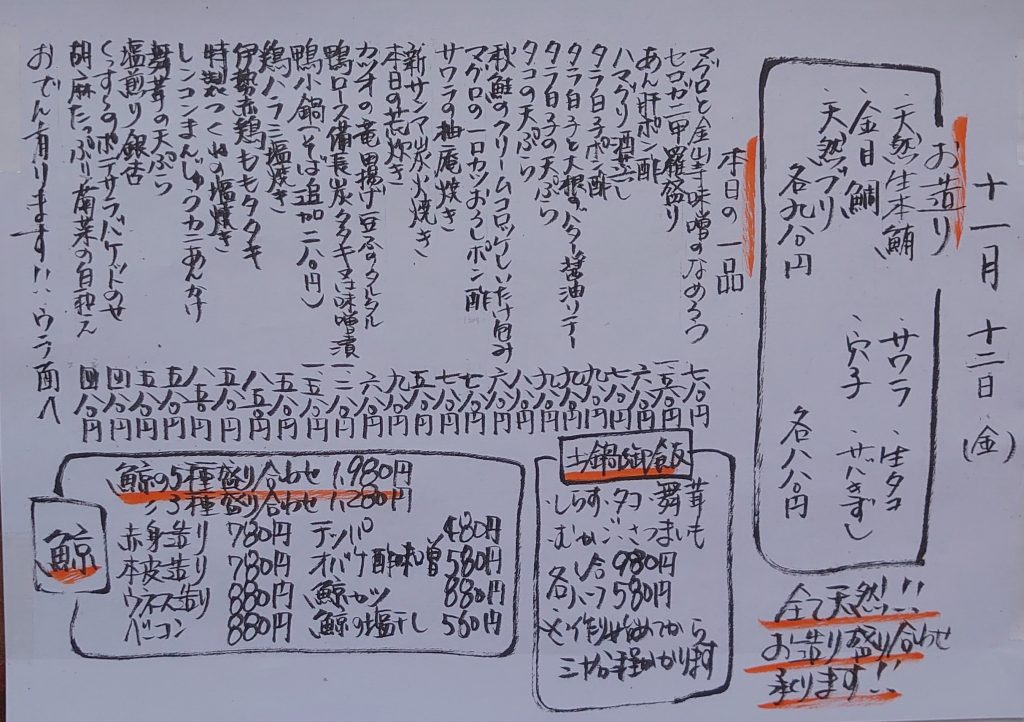 十一月 十二日(金)
お造り
・天然生本鮪
・金目鯛
・天然ブリ
各九八〇円
・サワラ ・生タコ
・穴子 ・サバきずし
各八八〇円
全て天然!!
お造り盛り合わせ
承ります!!
本日の一品
マグロと金山寺味噌のなめろう 七八〇円
セコガニ甲羅盛り
あん肝ポン酢
ハマグリ酒蒸し
タラ白子ポン酢
タラ白子と大根のバター醤油ソテー
タラ白子の天ぷら
タコの天ぷら
秋鮭のクリームコロッケしいたけ包み
マグロの一口カツおろしポン酢
サワラの柚庵焼き
新サンマ炭火焼き
本日の荒炊き
カツオの竜田揚げ豆谷のタルタル
鴨ロース備長炭タタキ 味噌漬
鴨小鍋(そば追加二八〇円)
鶏ハラミ塩焼き
伊勢赤鶏ももタタキ
特製つくねの塩焼き
レンコンまんじゅうカニあんかけ
舞茸の天ぷら 五八〇円
塩煎り銀杏 五八〇円
くんすじのポテサラバケットのせ 四八〇円
胡麻たっぷり菊菜の白和え 四八〇円
おでん有ります!!ウラ面へ
土鍋御飯
しらす・タコ・舞茸
むかご・さつまいも
各一合 980円
各ハーフ 580円
※作り始めてから
三十分程かかります
鯨
鯨の5種盛り合わせ 1,980円
〃 3種盛り合わせ 1,280円
赤身造り 780円 テッパ 480円
本皮造り 780円 オバケ酢味噌 580円
ウネス造り 880円 鯨カツ 880円
ベーコン 880円 鯨の塩干し 580円